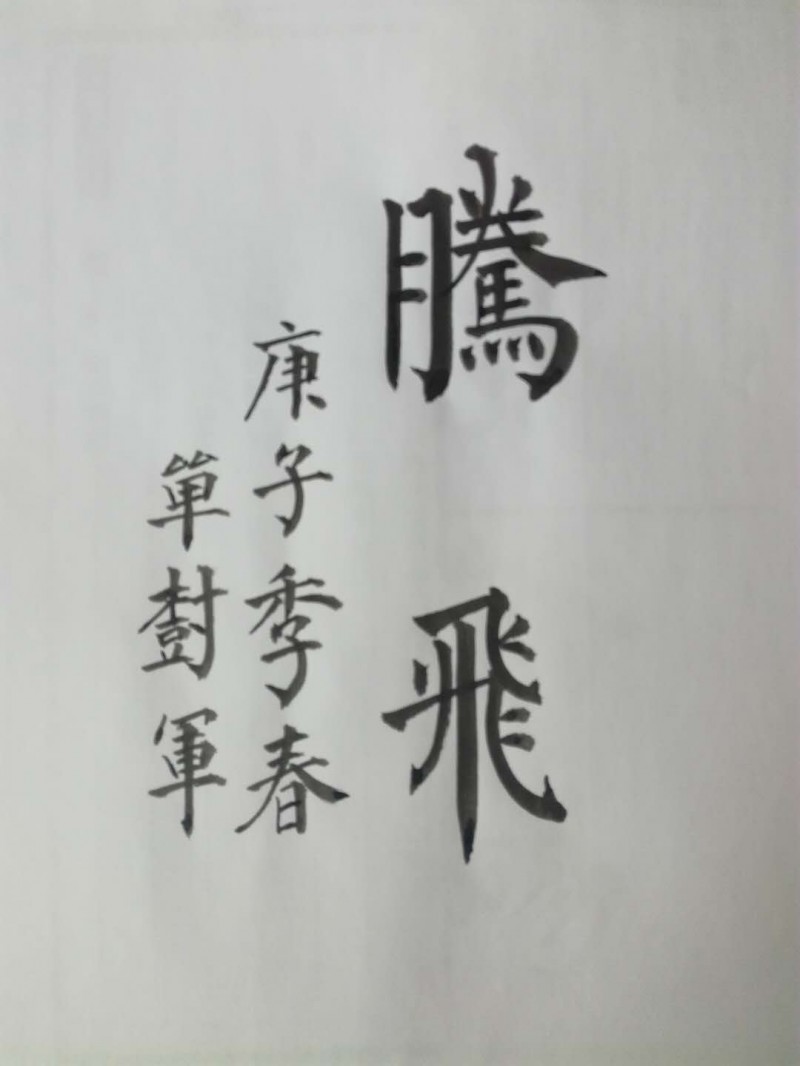 騰飛
庚子季春
單樹軍